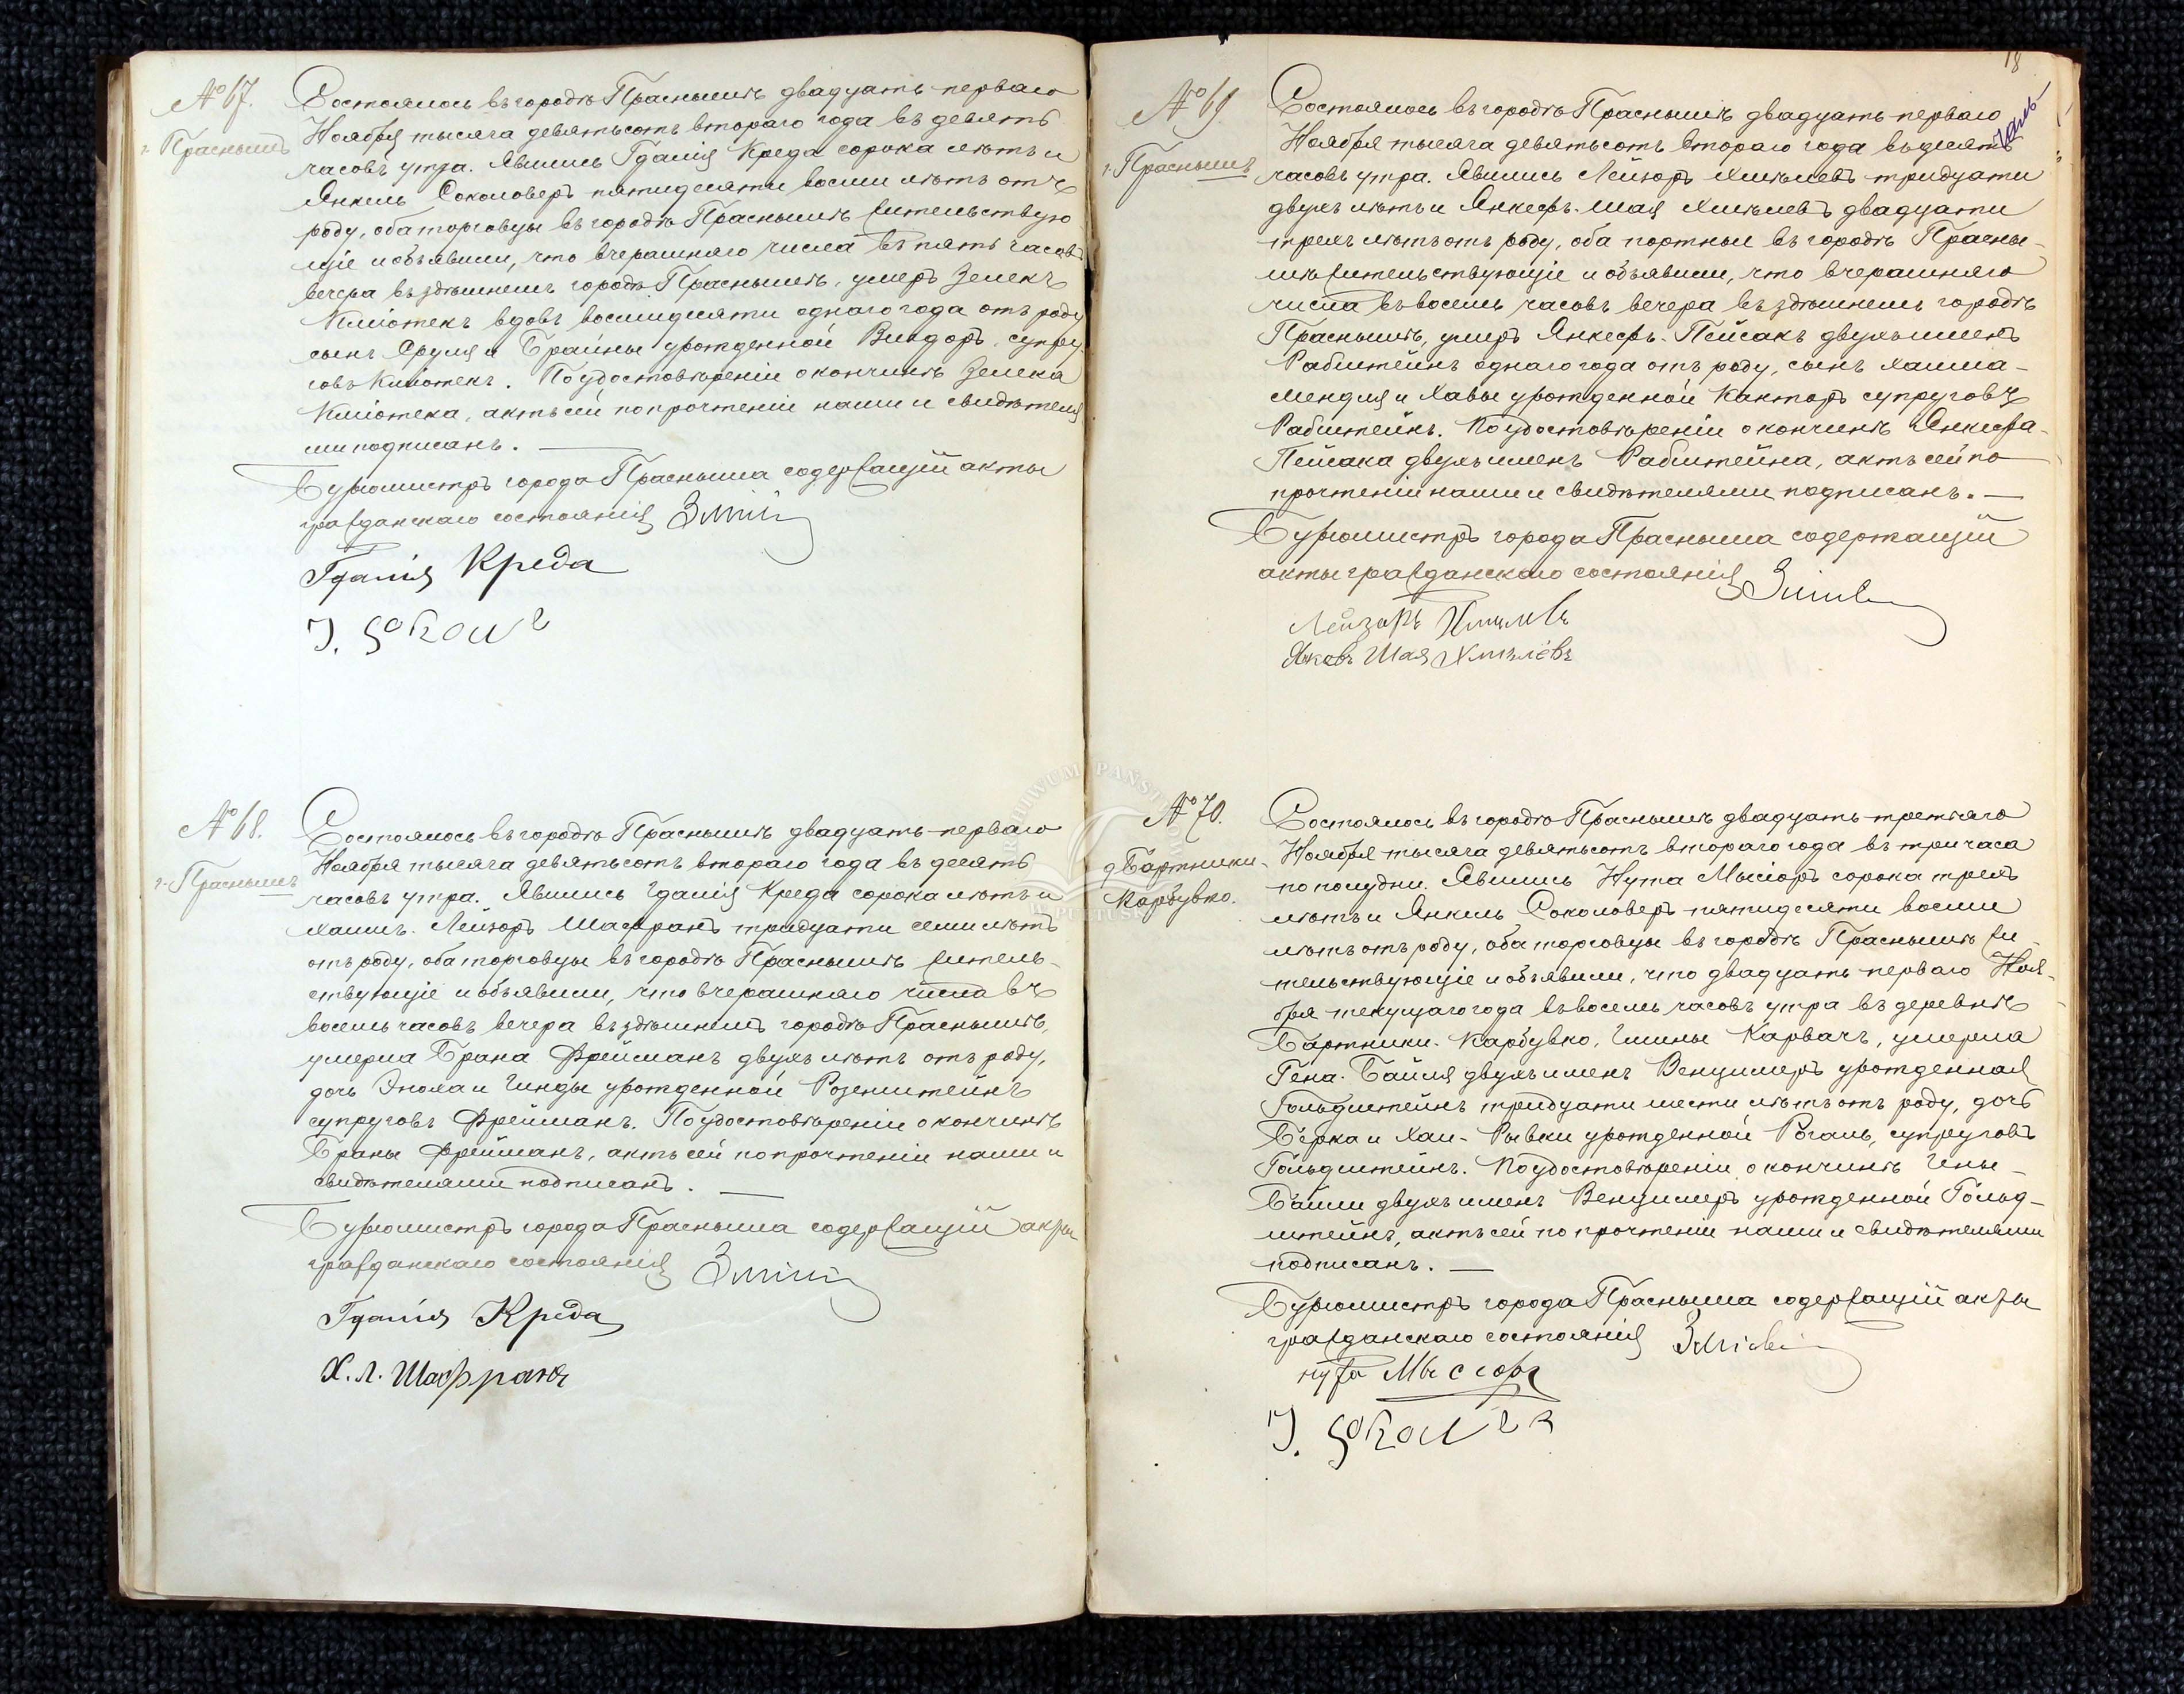 № 67.
г. Праснышъ
Состоялось въ городѣ Праснышѣ двадцать перваго
Ноября тысяча девятьсотъ втораго года въ девять
часовъ утра. Явились Гдалія Креда сорока лѣтъ и
Янкель Соколоверъ пятидесяти восьми лѣтъ отъ
роду, оба торговцы въ городѣ Праснышѣ жительствую
щіе и объявили, что вчерашняго числа въ пять часовъ
вечера въ здѣшнемъ городѣ Праснышѣ, умеръ Зелекъ
Кліотекъ вдовъ восьмидесяти однаго года отъ роду
сынъ Сруля и Брайны урожденной Виндоръ, супру
говъ Кліотекъ. По удостовѣреніи о кончинѣ Зелека
Кліотека, актъ сей по прочтеніи нами и свидѣтеля
ми подписанъ. —
Бургомистръ города Прасныша содержащій акты
гражданскаго состоянія
Гдалія Креда
J.
№ 68.
г. Праснышъ
Состоялось въ городѣ Праснышѣ двадцать перваго
Ноября тысяча девятьсотъ втораго года въ десять
часовъ утра. Явились Гдалія Креда сорока лѣтъ и
Хаимъ-Лейзоръ Шафранъ тридцати семи лѣтъ
отъ роду, оба торговцы въ городѣ Праснышѣ житель-
ствующіе и объявили, что вчерашняго числа въ
восемь часовъ вечера въ здѣшнемъ городѣ Праснышѣ,
умерла Брана Фрейманъ двухъ лѣтъ отъ роду,
дочь Эноха и Гинды урожденной Розенштейнъ
супруговъ Фрейманъ. По удостовѣреніи о кончинѣ
Браны Фрейманъ, актъ сей по прочтеніи нами и
свидѣтелями подписанъ. —
Бургомистръ города Прасныша содержащій акты
гражданскаго состоянія
Гдалія Креда
Х. Л. Шафранъ
18
№ 69.
г. Праснышъ
Состоялось въ городѣ Праснышѣ двадцать перваго
Ноября тысяча девятьсотъ втораго года въ десять
часовъ утра. Явились Лейзоръ Хмѣлевъ тридцати
двухъ лѣтъ и Янкефъ-Шая Хмѣлевъ двадцати
трехъ лѣтъ отъ роду, оба портные въ городѣ Прасны-
шѣ жительствующіе и объявили, что вчерашняго
числа въ восемь часовъ вечера въ здѣшнемъ городѣ
Праснышѣ, умеръ Янкефъ-Пейсакъ двухъ именъ
Рабштейнъ однаго года отъ роду, сынъ Хаима-
Мендля и Хавы урожденной Канторъ супруговъ
Рабштейнъ. По удостовѣреніи о кончинѣ Янкефа-
Пейсака двухъ именъ Рабштейна, актъ сей по
прочтеніи нами и свидѣтелями подписанъ. —
Бургомистръ города Прасныша содержащій
акты гражданскаго состоянія
Лейзоръ Хмѣлевъ
Янкевъ Шая Хмѣлевъ
№ 70.
д. Бартники-
Карбувко.
Состоялось въ городѣ Праснышѣ двадцать третьяго
Ноября тысяча девятьсотъ втораго года въ три часа
по полудни. Явились Нута Мысіоръ сорока трехъ
лѣтъ и Янкель Соколоверъ пятидесяти восьми
лѣтъ отъ роду, оба торговцы въ городѣ Праснышѣ жи-
тельствующіе и объявили, что двадцать перваго Ноя-
бря текущаго года въ восемь часовъ утра въ деревнѣ
Бартники-Карбувко, Гмины Карвачъ, умерла
Гена-Байля двухъ именъ Венцимеръ урожденная
Гольдштейнъ тридцати шести лѣтъ отъ роду, дочь
Берка и Хаи-Рывки урожденной Рогаль, супруговъ
Гольдштейнъ. По удостовѣреніи о кончинѣ Гены-
Байли двухъ именъ Венцимеръ урожденной Гольд-
штейнъ, актъ сей по прочтеніи нами и свидѣтелями
подписанъ. —
Бургомистръ города Прасныша содержащій акты
гражданскаго состоянія
нута Мысіоръ
J.